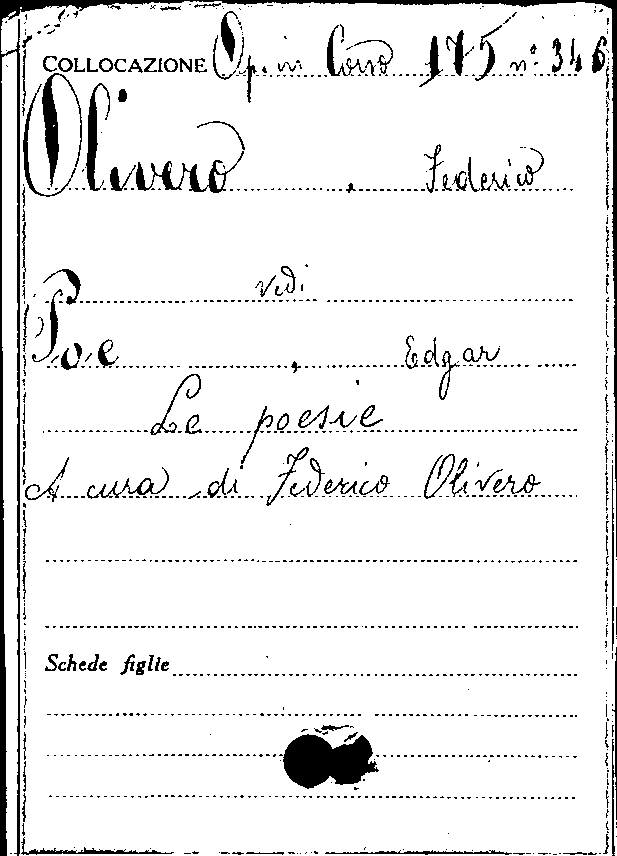 COLLOCAZIONE Op. in Corso 175 n° 346
Olivero, Federico
vedi
Poe, Edgar
Le poesie
A cura di Federico Olivero
Schede figlie